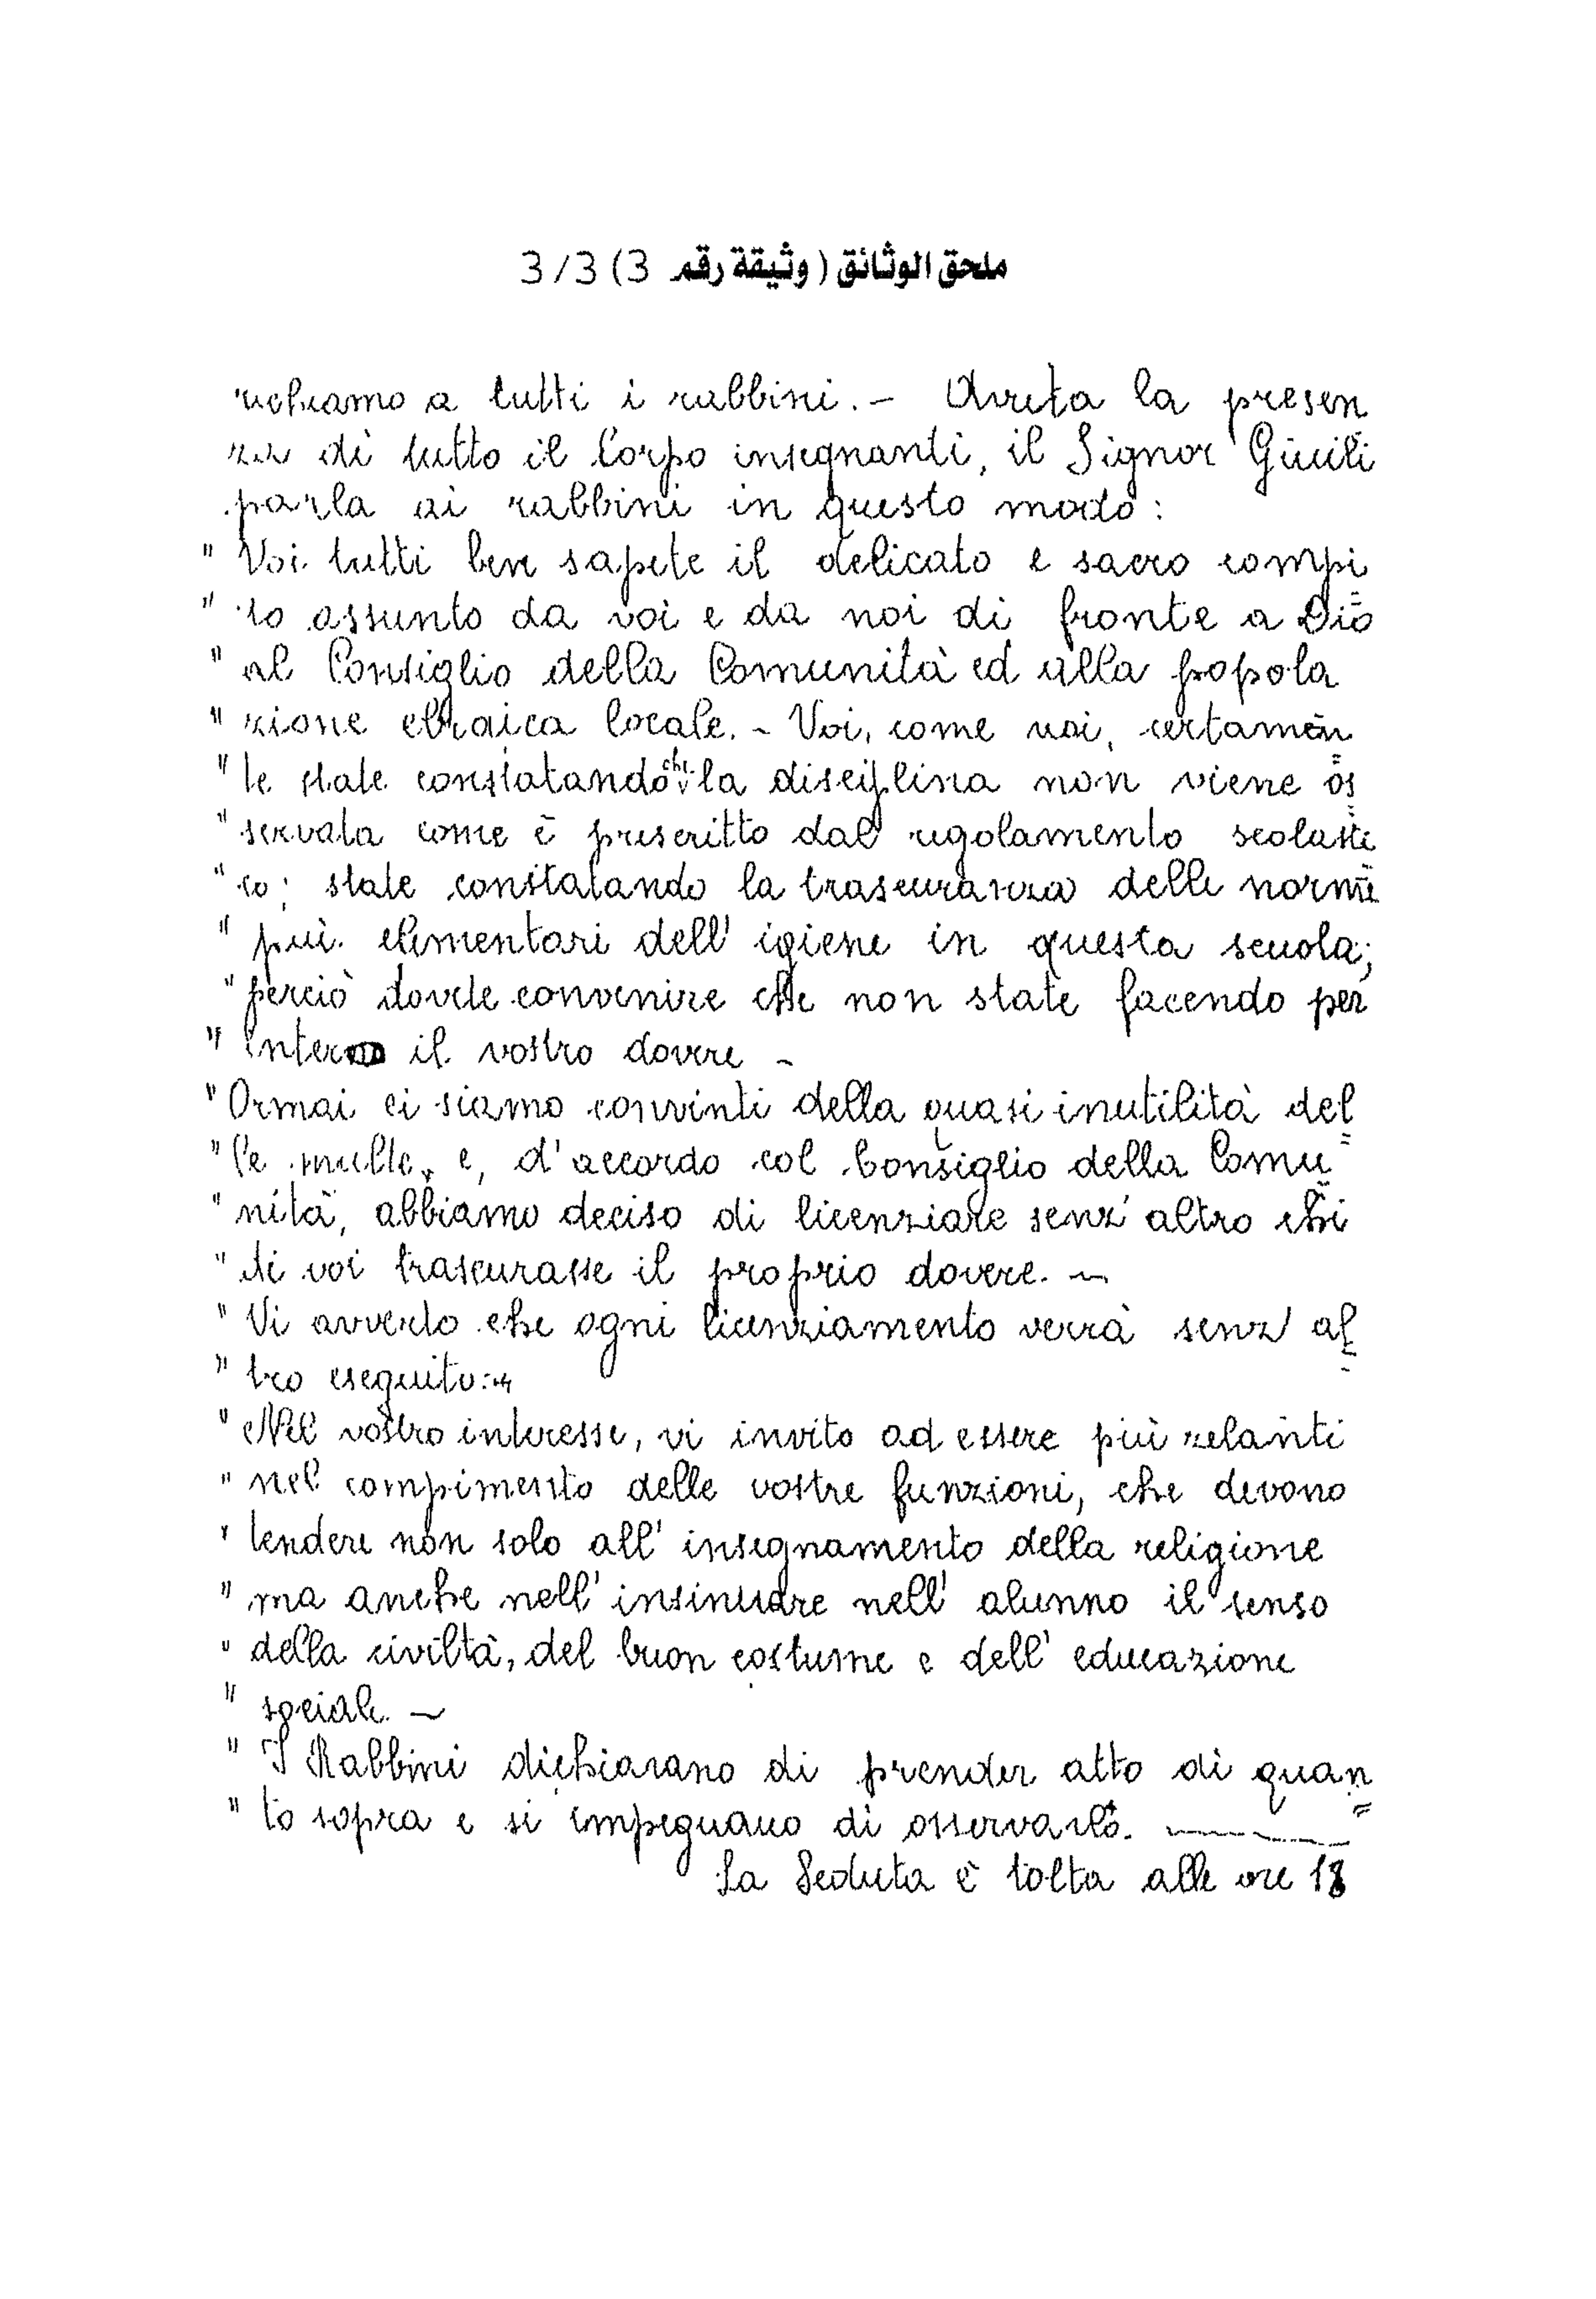 ملحق الوثائق ( وثيقة رقم 3) 3/3
richiamo a tutti i rabbini. — Avuta la presen
za di tutto il Corpo insegnanti, il Signor Giuili
parla ai rabbini in questo modo:
" Voi tutti ben sapete il delicato e sacro compi=
" to assunto da voi e da noi di fronte a Dio
" al Consiglio della Comunità ed alla popola
" zione ebraica locale. - Voi, come noi, certamen=
" te state constatando che la disciplina non viene os=
" servata come è prescritto dal regolamento scolasti=
" co; state constatando la trascuranza delle norme
" più elementari dell' igiene in questa scuola;
" perciò dovete convenire che non state facendo per
" intero il vostro dovere -
" Ormai ci siamo convinti della quasi inutilità del=
" le multe, e, d'accordo col Consiglio della Comu=
" nità, abbiamo deciso di licenziare senz' altro chi
" di voi trascurasse il proprio dovere. —
" Vi avverto che ogni licenziamento verrà senz' al=
" tro eseguito: -
" Nel vostro interesse, vi invito ad essere più zelanti
" nel compimento delle vostre funzioni, che devono
" tendere non solo all' insegnamento della religione
" ma anche nell' insinuare nell' alunno il senso
" della civiltà, del buon costume e dell' educazione
" sociale. —
" I Rabbini dichiarano di prender atto di quan=
" to sopra e si impegnano di osservarlo. ———
La Seduta è tolta alle ore 18